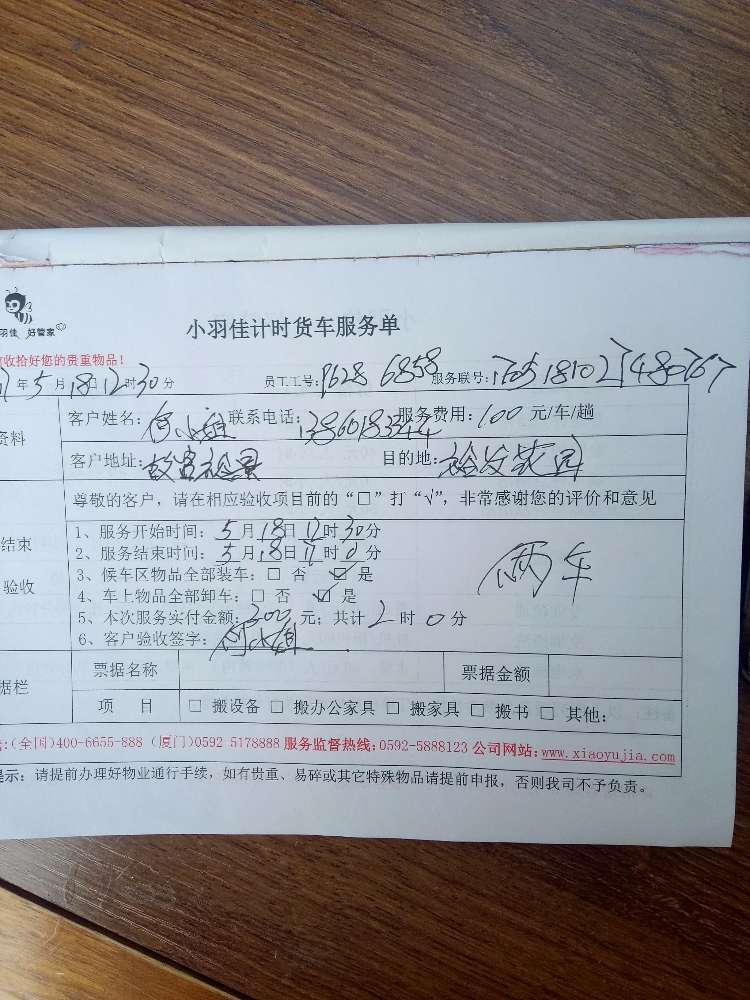 羽佳 好管家
小羽佳计时货车服务单
收拾好您的贵重物品！
年5月18日12时30分 员工工号：9628 6858 服务联号：
资料
客户姓名：何小姐 联系电话：13860183244 服务费用：100元/车/趟
客户地址：故宫裕景 目的地：裕发花园
尊敬的客户，请在相应验收项目前的“□”打“√”，非常感谢您的评价和意见
结束
验收
1、服务开始时间：5月18日12时30分
2、服务结束时间：5月18日17时0分
3、候车区物品全部装车：□ 否 ☑ 是
4、车上物品全部卸车：□ 否 ☑ 是
两车
5、本次服务实付金额：300元；共计2时0分
6、客户验收签字：何小姐
据栏
票据名称 票据金额
项 目 □ 搬设备 □ 搬办公家具 □ 搬家具 □ 搬书 □ 其他：
：(全国)400-6655-888 (厦门)0592 5178888 服务监督热线：0592-5888123 公司网站：www.xiaoyujia.com
提示：请提前办理好物业通行手续，如有贵重、易碎或其它特殊物品请提前申报，否则我司不予负责。